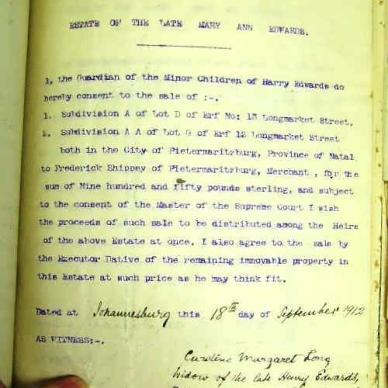 ESTATE OF THE LATE MARY ANN EDWARDS.
I, the Guardian of the Minor Children of Harry Edwards do
hereby consent to the sale of :-.
1. Subdivision A of Lot D of Erf No: 13 Longmarket Street,
2. Subdivision A A of Lot G of Erf 12 Longmarket Street
both in the City of Pietermaritzburg, Province of Natal
to Frederick Shippey of Pietermaritzburg, Merchant, for the
sum of Nine hundred and fifty pounds sterling, and subject
to the consent of the Master of the Supreme Court I wish
the proceeds of such sale to be distributed among the Heirs
of the above Estate at once. I also agree to the sale by
the Executor Dative of the remaining immovable property in
this Estate at such price as he may think fit.
Dated at Johannesburg this 18th day of September 1912
AS WITNESS:-.
Caroline Margaret Long
Widow of the late Harry Edwards,